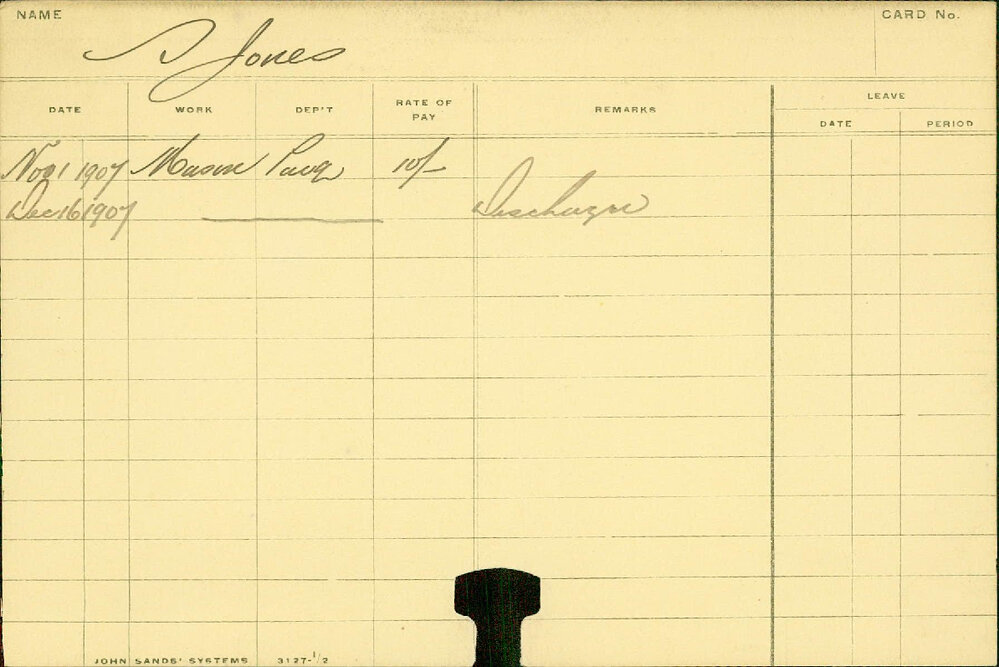 NAME
CARD No.
S Jones
DATE WORK DEP'T RATE OF PAY REMARKS LEAVE
DATE PERIOD
Nov 1 1907 Mason 10/-
Dec 16 1907 Discharge
JOHN SANDS' SYSTEMS 3127-1/2